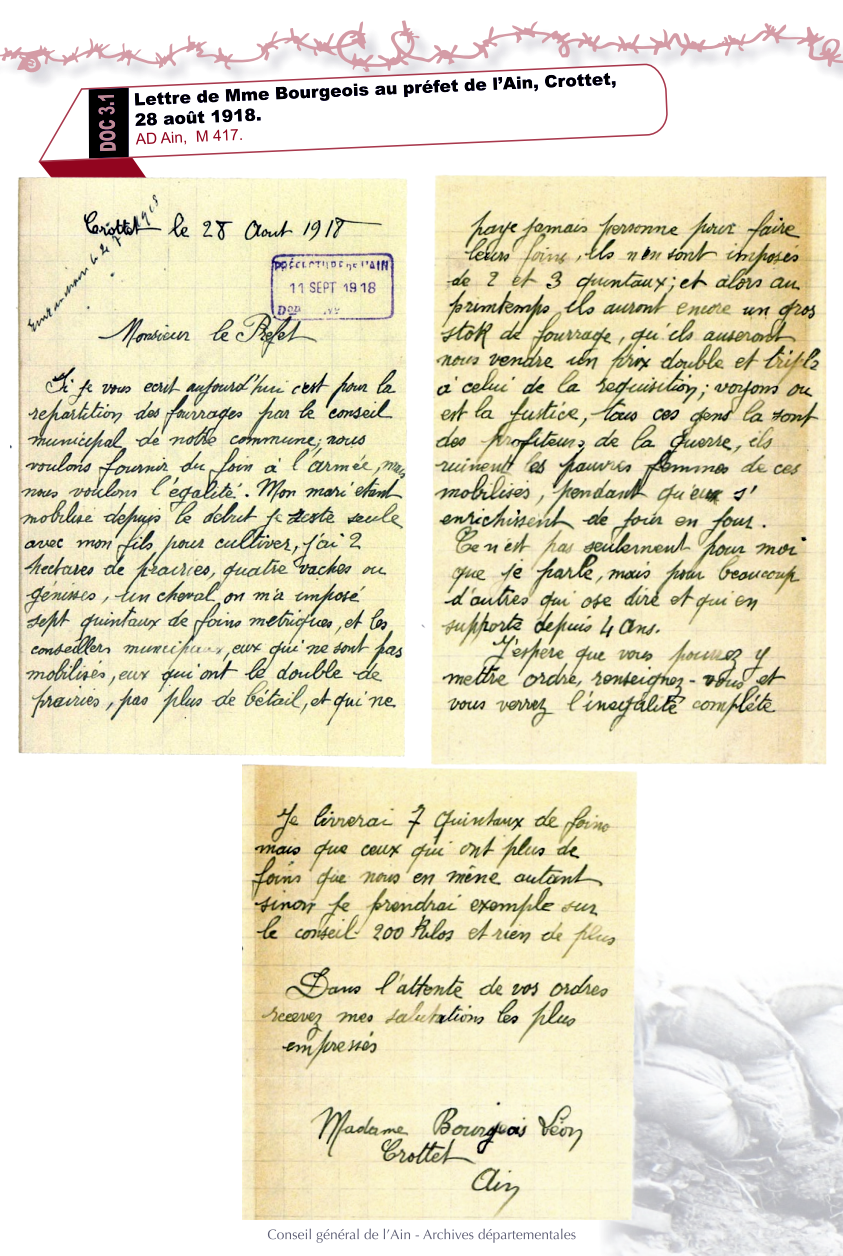 DOC 3.1
Lettre de Mme Bourgeois au préfet de l'Ain, Crottet,
28 août 1918.
AD Ain, M 417.
Crottet le 28 Aout 1918
PRÉFECTURE DE L'AIN
11 SEPT 1918
Monsieur le Prefet
Si je vous ecrit aujourd'hui c'est pour la
repartition des fourrages par le conseil
municipal de notre commune; nous
voulons fournir du foin à l'armée, mais
nous voulons l'égalité. Mon mari étant
mobilisé depuis le début je reste seule
avec mon fils pour cultiver, j'ai 2
hectares de prairies, quatre vaches ou
génisses, un cheval on m'a imposé
sept quintaux de foins metriques, et les
conseillers municipaux, eux qui ne sont pas
mobilisés, eux qui ont le double de
prairies, pas plus de bétail, et qui ne
paye jamais personne pour faire
leurs foins, ils n'en sont imposés
de 2 et 3 quintaux; et alors au
printemps ils auront encore un gros
stok de fourrage, qu'ils auseront
nous vendre un prix double et triple
à celui de la requisition; voyons ou
est la justice, tous ces gens la sont
des profiteurs de la guerre, ils
ruinent les pauvres femmes de ces
mobilisés, pendant qu'eux s'
enrichissent de jour en jour.
Ce n'est pas seulement pour moi
que je parle, mais pour beaucoup
d'autres qui ose dire et qui en
supporte depuis 4 ans.
J'espère que vous pourrez y
mettre ordre, renseignez-vous et
vous verrez l'inégalité complète
Je livrerai 7 quintaux de foins
mais que ceux qui ont plus de
foins que nous en mène autant
sinon je prendrai exemple sur
le conseil 200 kilos et rien de plus
Dans l'attente de vos ordres
recevez mes salutations les plus
empressés
Madame Bourgeois Léon
Crottet
Ain
Conseil général de l'Ain - Archives départementales